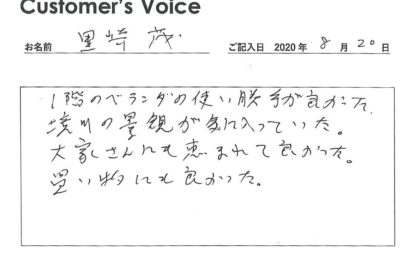 Customer's Voice
お名前 黒崎 茂 ご記入日 2020年 8月 20日
1階のベランダの使い勝手が良かった。
境川の景観が気に入っていた。
大家さんにも恵まれて良かった。
買い物にも良かった。